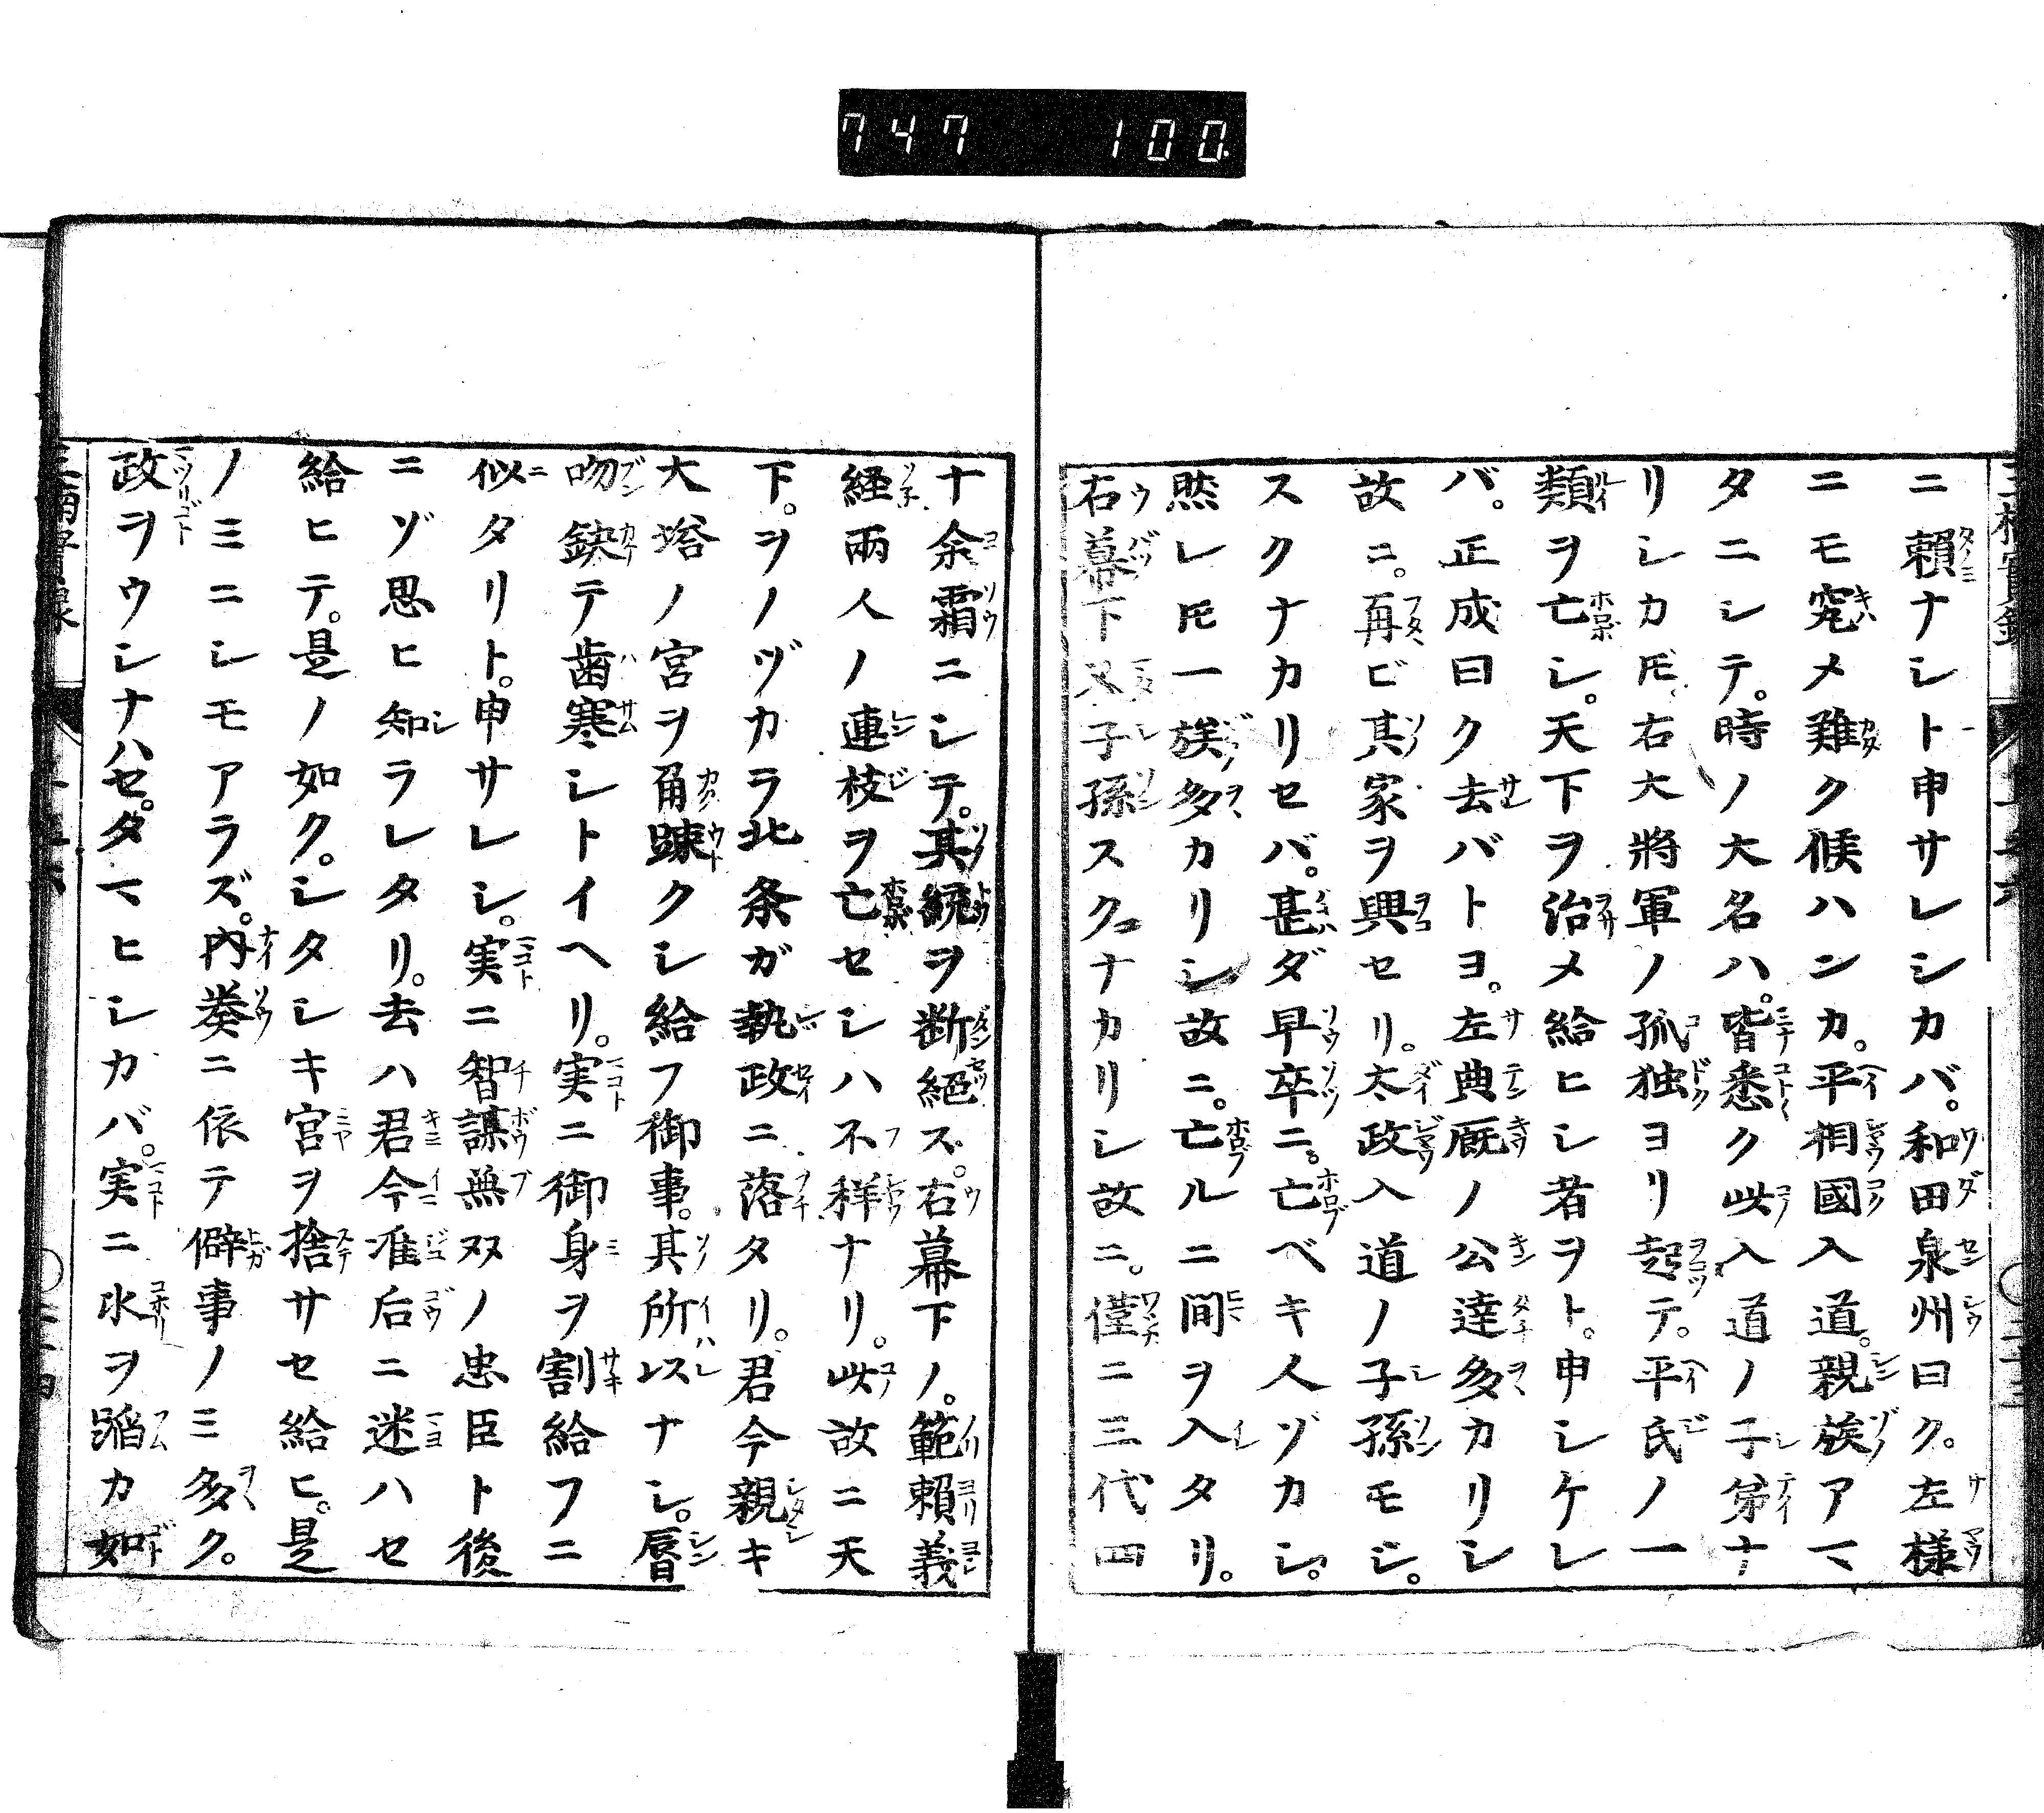 747 100
ニ頼ナシト申サレシカバ。和田泉州曰ク。左様
ニモ究メ難ク候ハンカ。平相國入道。親族アマ
タニシテ。時ノ大名ハ。皆悉ク此入道ノ子弟ナ
リシカ𪜈。右大將軍ノ孤独ヨリ起テ。平氏ノ一
類ヲ亡シ。天下ヲ治メ給ヒシ者ヲト。申シケレ
バ。正成曰ク去バトヨ。左典厩ノ公達多カリシ
故ニ。再ビ其家ヲ興セリ。太政入道ノ子孫モシ。
スクナカリセバ。甚ダ早卒ニ。亡ベキ人ゾカシ。
然レ𪜈一族多カリシ故ニ。亡ルニ間ヲ入タリ。
右幕下又子孫スクナカリシ故ニ。僅ニ三代四
十余霜ニシテ。其統ヲ断絕ス。右幕下ノ。範頼義
経兩人ノ連枝ヲ亡セシハ不祥ナリ。此故ニ天
下。ヲノヅカラ北条ガ執政ニ落タリ。君今親キ
大塔ノ宮ヲ角踈クシ給フ御事。其所以ナシ。脣
吻鈌テ歯寒シトイヘリ。実ニ御身ヲ割給フニ
似タリト。申サレシ。実ニ智謀無双ノ忠臣ト後
ニゾ思ヒ知ラレタリ。去ハ君今准后ニ迷ハセ
給ヒテ。是ノ如ク。シタシキ宮ヲ捨サセ給ヒ。是
ノミニシモアラズ。内奏ニ依テ僻事ノミ多ク。
政ヲウシナハセ。タマヒシカバ。実ニ氷ヲ蹈カ如